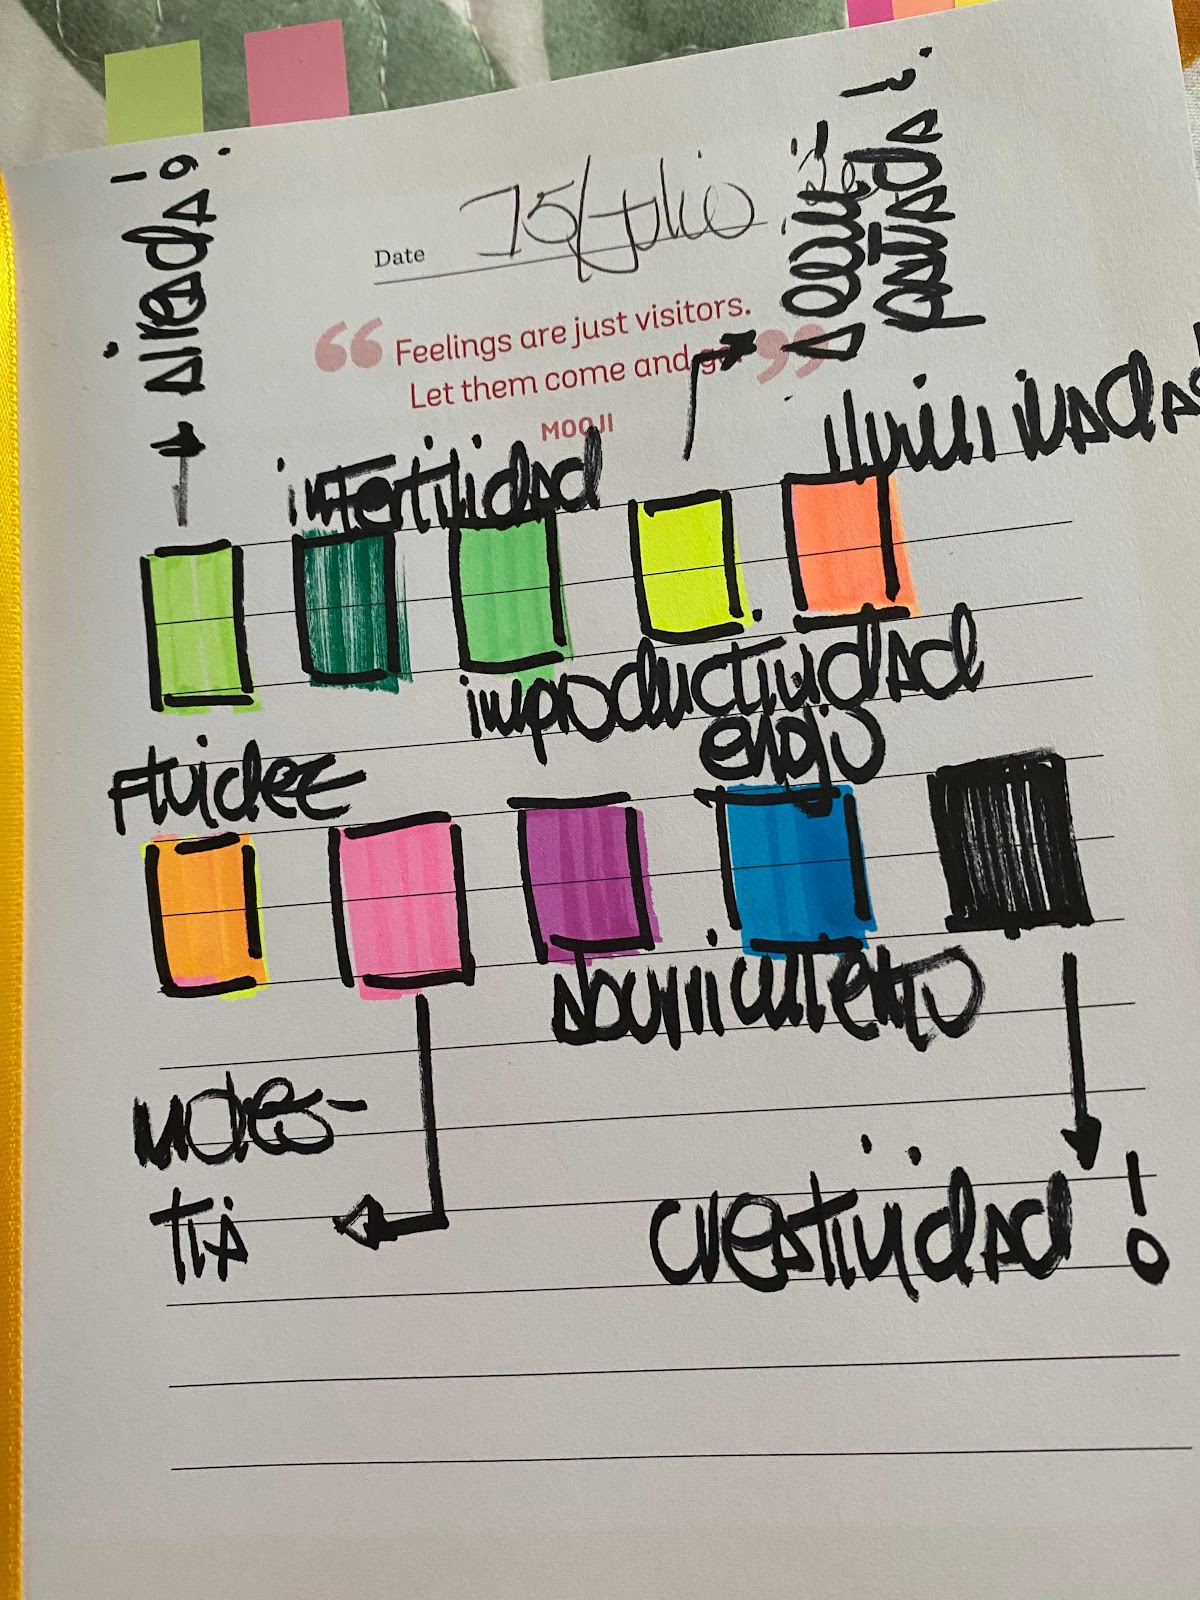 Date 15/Julio
Feelings are just visitors.
Let them come and go.
MOOJI
infertilidad
improductividad
enojo
Fluidez
aburrimiento
moles-
tia
creatividad!